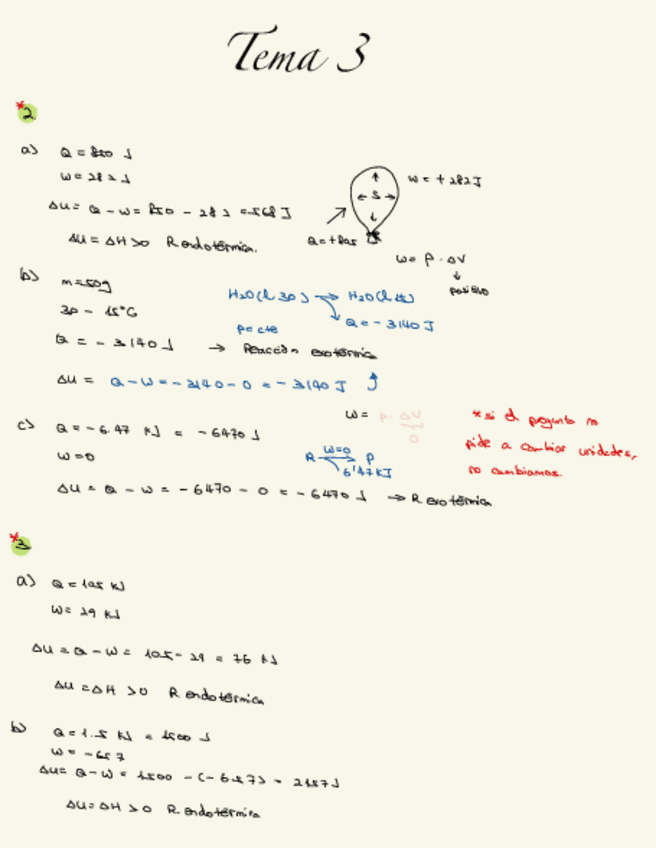 Tema 3
*2
a) Q = 850 J
W = 282 J
W = + 282 J
← S →
ΔU = Q - W = 850 - 282 = 568 J
Q = + 850
ΔU = ΔH > 0 R endotérmica.
W = P · ΔV
↓
positivo
b) m = 50g
H2O (l, 30) → H2O (l, 15)
30 - 15°C
Q = - 3140 J
P = cte
Q = - 3140 J → Reacción exotérmica
ΔU = Q - W = - 3140 - 0 = - 3140 J
W = P · ΔV
0
c) Q = - 6.47 KJ = - 6470 J
W = 0
R W=0 → P
6'47 KJ
ΔU = Q - W = - 6470 - 0 = - 6470 J → R exotérmica
* si el pregunta no
pide a cambiar unidades,
no cambiamos
*3
a) Q = 105 KJ
W = 29 KJ
ΔU = Q - W = 105 - 29 = 76 KJ
ΔU = ΔH > 0 R endotérmica
b) Q = 1.5 KJ = 1500 J
W = - 657
ΔU = Q - W = 1500 - (- 657) = 2157 J
ΔU = ΔH > 0 R endotérmica